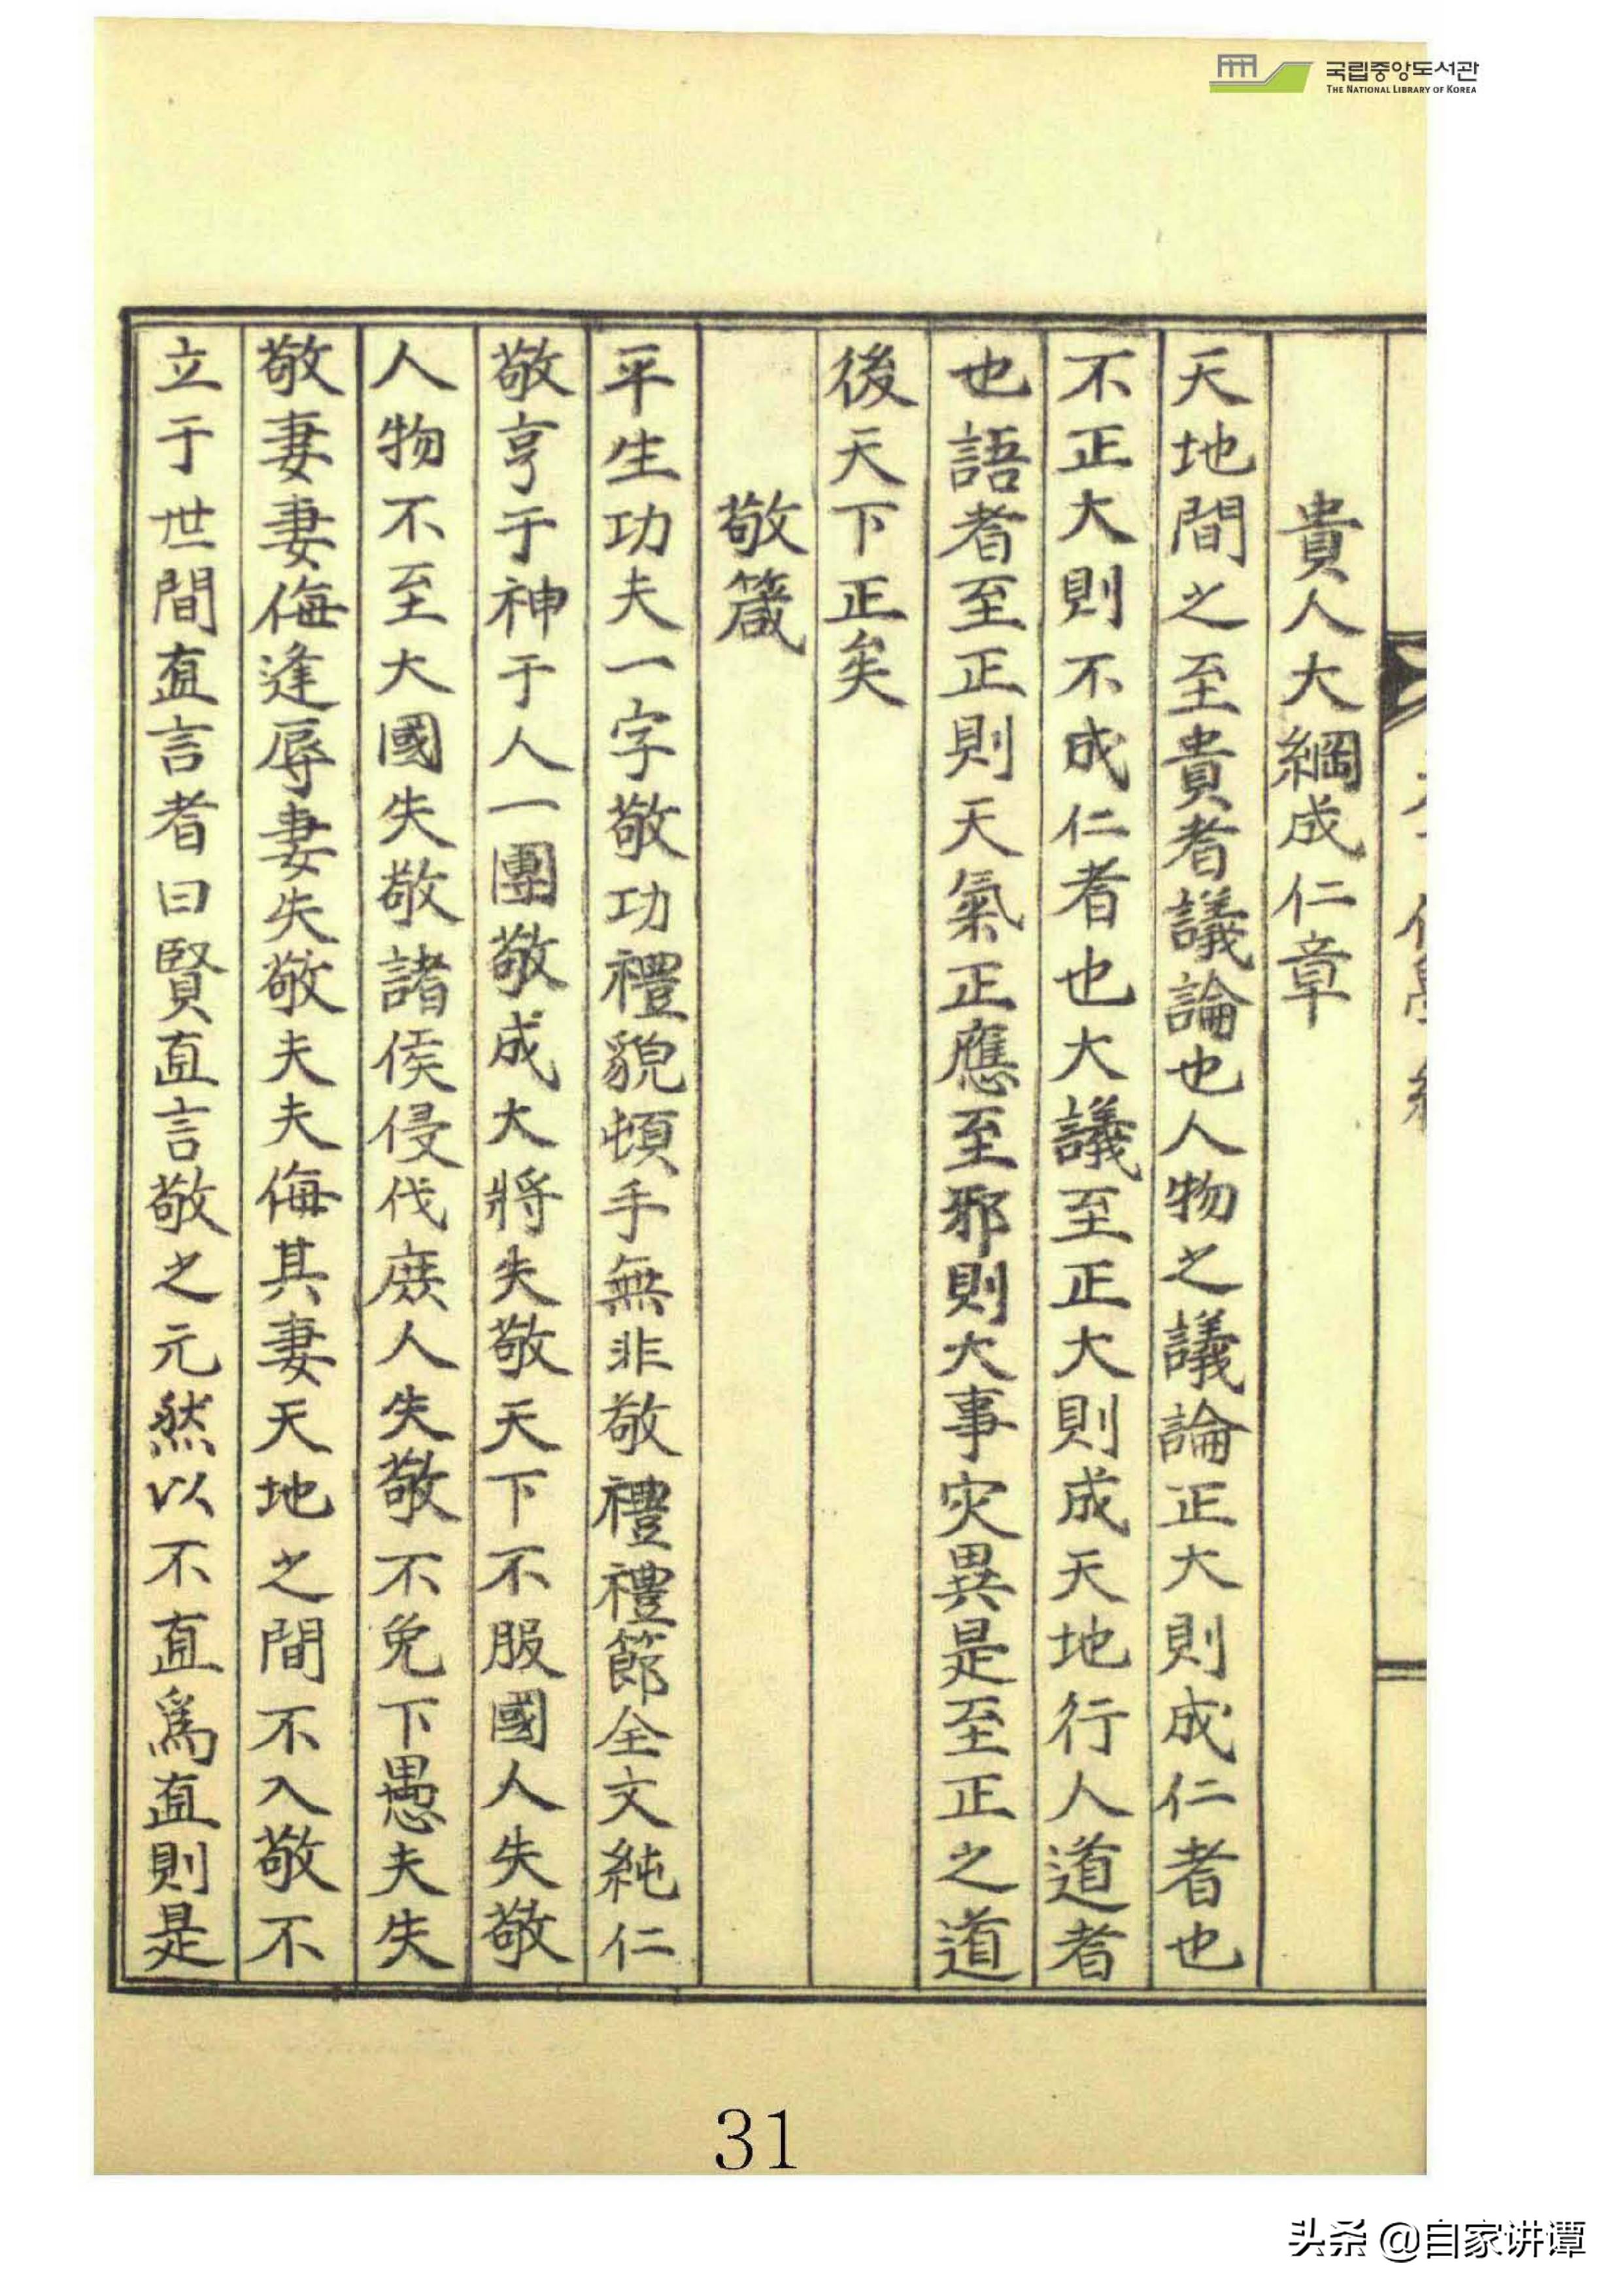 국립중앙도서관
THE NATIONAL LIBRARY OF KOREA
貴人大綱成仁章
天地間之至貴者議論也人物之議論正大則成仁者也
不正大則不成仁者也大議至正大則成天地行人道者
也語者至正則天氣正應至邪則大事灾異是至正之道
後天下正矣
敬箴
平生功夫一字敬功禮貌頓手無非敬禮禮節全文純仁
敬亨于神于人一團敬成大將失敬天下不服國人失敬
人物不至大國失敬諸侯侵伐庶人失敬不免下愚夫失
敬妻妻侮逢辱妻失敬夫夫侮其妻天地之間不入敬不
立于世間直言者曰賢直言敬之元然以不直爲直則是
31
头条 @自家讲谭